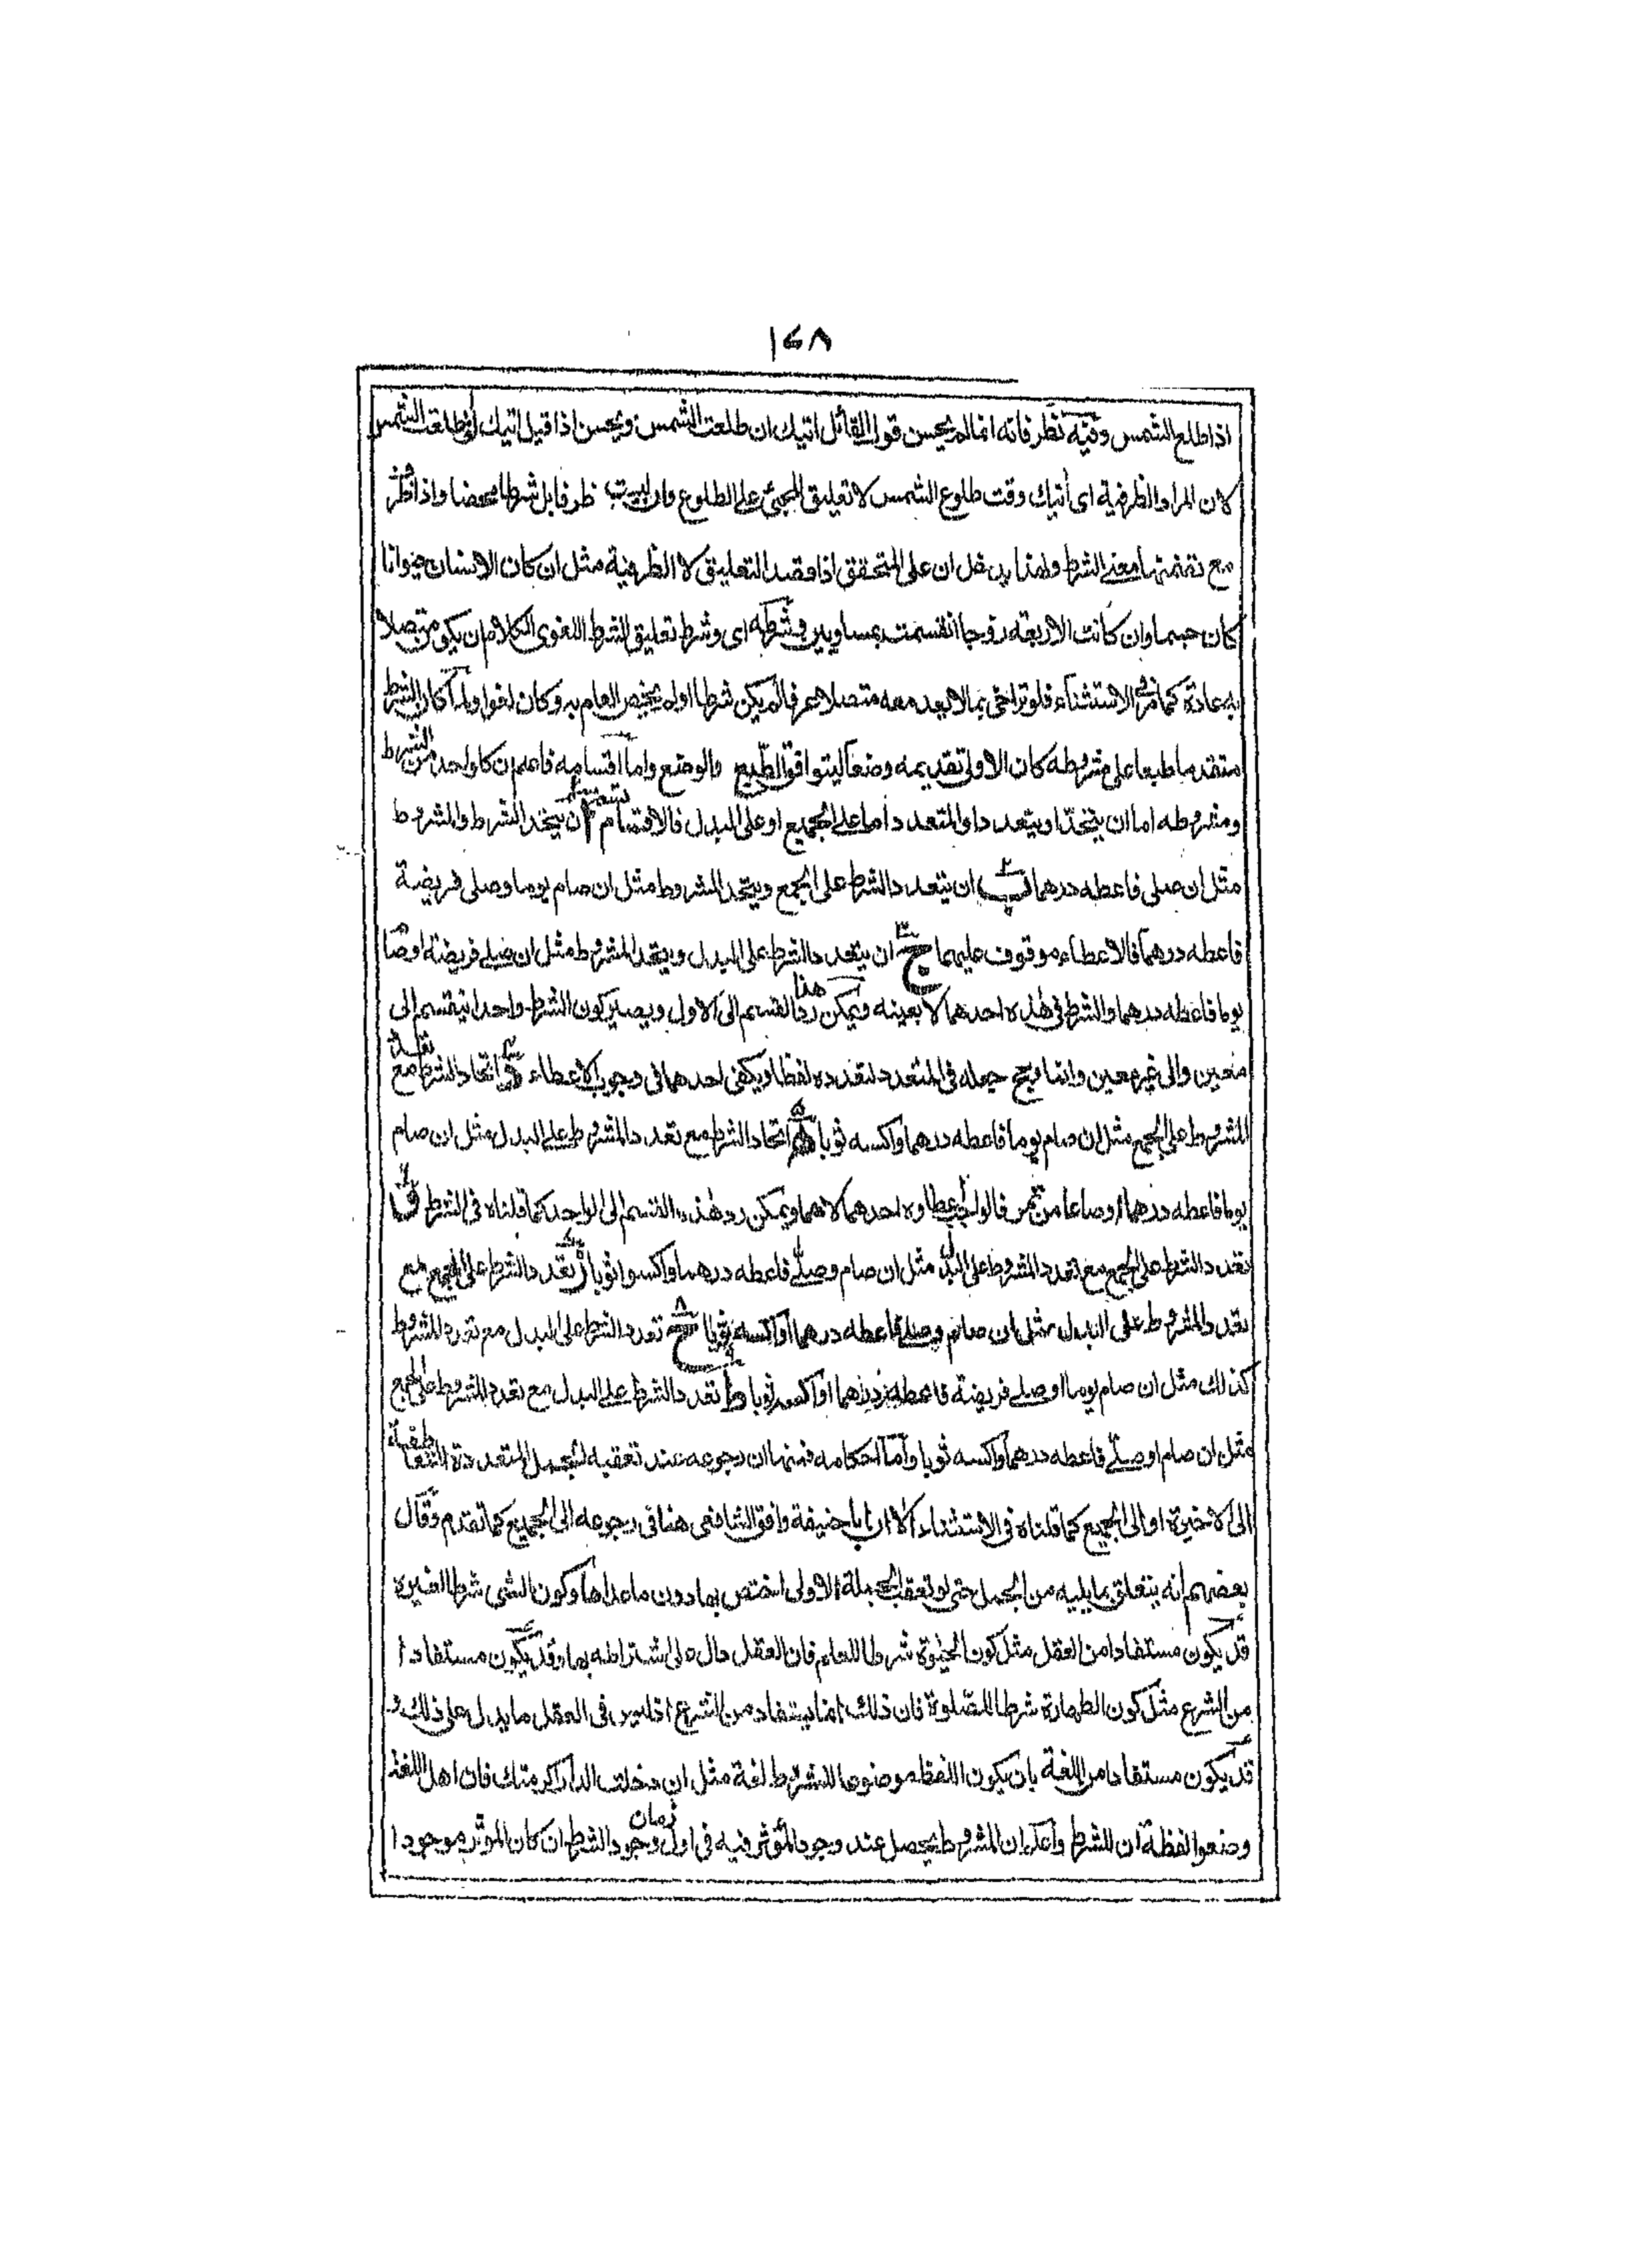 ١٤٨
اذا طلع الشمس وفيه نظر فانه انما لم يحسن قول القائل اتيك ان طلعت الشمس ويحسن اذا قيل اتيك اذا طلعت الشمس
لان المراد الظرفية اى أتيك وقت طلوع الشمس لا تعليق المجيئ على الطلوع وان ليست ظرفا بل شرطا محضا واذا ظرف
مع تضمنها معنى الشرط ولهذا يدخل ان على المتحقق اذا قصد التعليق لا الظرفية مثل ان كان الانسان حيوانا
كان جسما وان كانت الاربعة زوجا انقسمت بمساويين وشرطه اى وشرط تعليق الشرط اللغوى الكلام ان يكون متصلا
به عادة كما مر فى الاستثناء فلو تراخى بما لا يعد معه متصلا عرفا لم يكن شرطا اوله يخص العام به وكان لغوا ولما كان الشرط
متقدما طبعا على مشروطه كان الاولى تقديمه وضعا ليتوافق الطبع والوضع واما اقسامه فاعلم ان كل واحد من الشرط
ومشروطه اما ان يتحدا او يتعددا والمتعدد اما على الجميع او على البدل فالاقسام تسعة ا ان يتحد الشرط والمشروط
مثل ان صلى فاعطه درهما ب ان يتعدد الشرط على الجمع ويتحد المشروط مثل ان صام يوما وصلى فريضة
فاعطه درهما فالاعطاء موقوف عليهما ج ان يتعدد الشرط على البدل ويتحد المشروط مثل ان صلى فريضة او صام
يوما فاعطه درهما والشرط فى هذه احدهما لا بعينه ويمكن رد هذا القسم الى الاول ويصير كون الشرط واحدا ينقسم الى
معين والى غير معين وانما رجح جعله فى المتعدد لتعدده لفظا ويكفى احدهما فى وجوب الاعطاء د اتحاد الشرط مع تعدد
المشروط على الجمع مثل ان صام يوما فاعطه درهما واكسه ثوبا ه اتحاد الشرط مع تعدد المشروط على البدل مثل ان صام
يوما فاعطه درهما او صاعا من تمر فالواجب اعطاوه احدهما لا هما ويمكن رد هذه القسم الى الواحد كما قلناه فى الشرط و
تعدد الشرط على الجمع مع تعدد المشروط على البدل مثل ان صام وصلى فاعطه درهما واكسوا ثوبا ز تعدد الشرط على الجمع مع
تعدد المشروط على البدل مثل ان صام وصلى فاعطه درهما او اكسه ثوبا ح تعدد الشرط على البدل مع تعدد المشروط
كذلك مثل ان صام يوما او صلى فريضة فاعطه درهما او اكسه ثوبا ط تعدد الشرط على البدل مع تعدد المشروط على الجمع
مثل ان صام او صلى فاعطه درهما واكسه ثوبا واما احكامه فمنها ان رجوعه عند تعقبه للجمل المتعددة المتعاطفة
الى الاخيرة او الى الجميع كما قلناه فى الاستثناء الا ان ابا حنيفة وافق الشافعى هنا فى رجوعه الى الجميع كما تقدم وقال
بعضهم انه يتعلق بما يليه من الجمل حتى لو تعقب الجملة الاولى اختص بها دون ما عداها وكون الشى شرطا لغيره
قد يكون مستفادا من العقل مثل كون الحيوة شرطا للعلم فان العقل دال على اشتراطه بها وقد يكون مستفادا
من الشرع مثل كون الطهارة شرطا للصلوة فان ذلك انما يستفاد من الشرع اذ ليس فى العقل ما يدل على ذلك و
قد يكون مستفادا من اللغة بان يكون اللفظ موضوعا للشرط لغة مثل ان دخلت الدار اكرمتك فان اهل اللغة
وضعوا لفظة ان للشرط واعلم ان المشروط يحصل عند وجود المؤثر فيه فى اول زمان وجود الشرط ان كان المؤثر موجودا